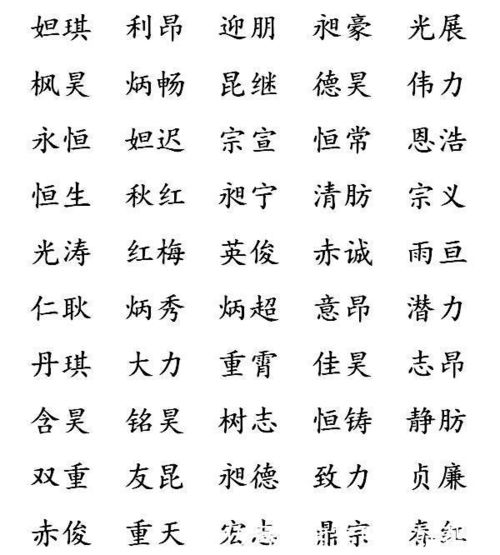 妲琪 利昂 迎朋 昶豪 光展
枫昊 炳畅 昆继 德昊 伟力
永恒 妲迟 宗宣 恒常 恩浩
恒生 秋红 昶宁 清肪 宗义
光涛 红梅 英俊 赤诚 雨亘
仁耿 炳秀 炳超 意昂 潜力
丹琪 大力 重霄 佳昊 志昂
含昊 铭昊 树志 恒铸 静肪
双重 友昆 昶德 致力 贞廉
赤俊 重天 宏志 鼎宗